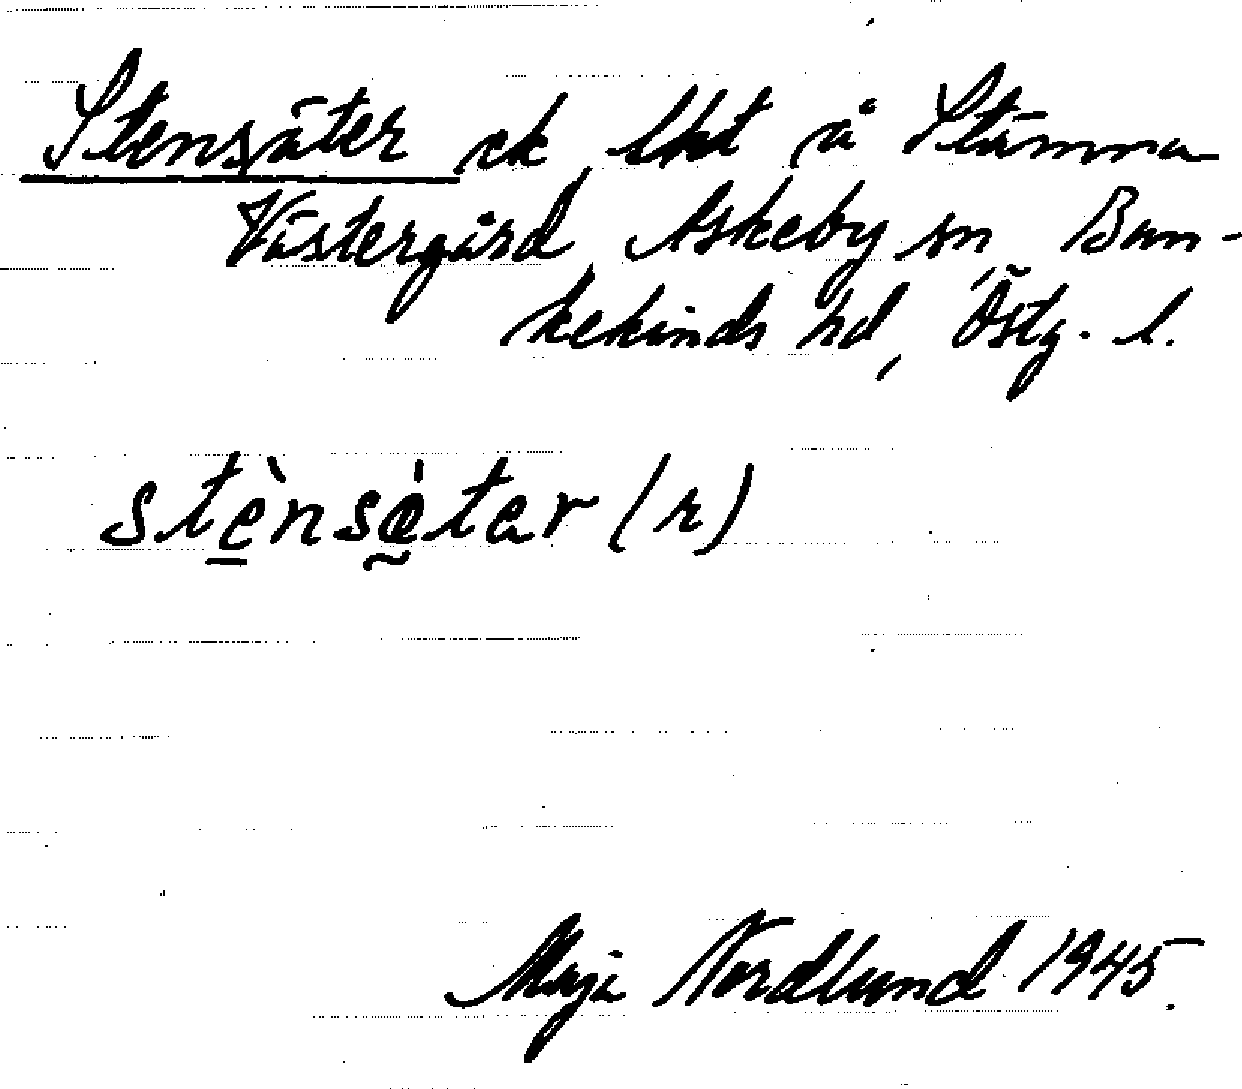 Stensäter ek lht å Stämma
Västergård, Askeby sn, Ban-
kekinds hd, Östg. l.
stènsǽtar (r)
Maja Nordlund 1945.